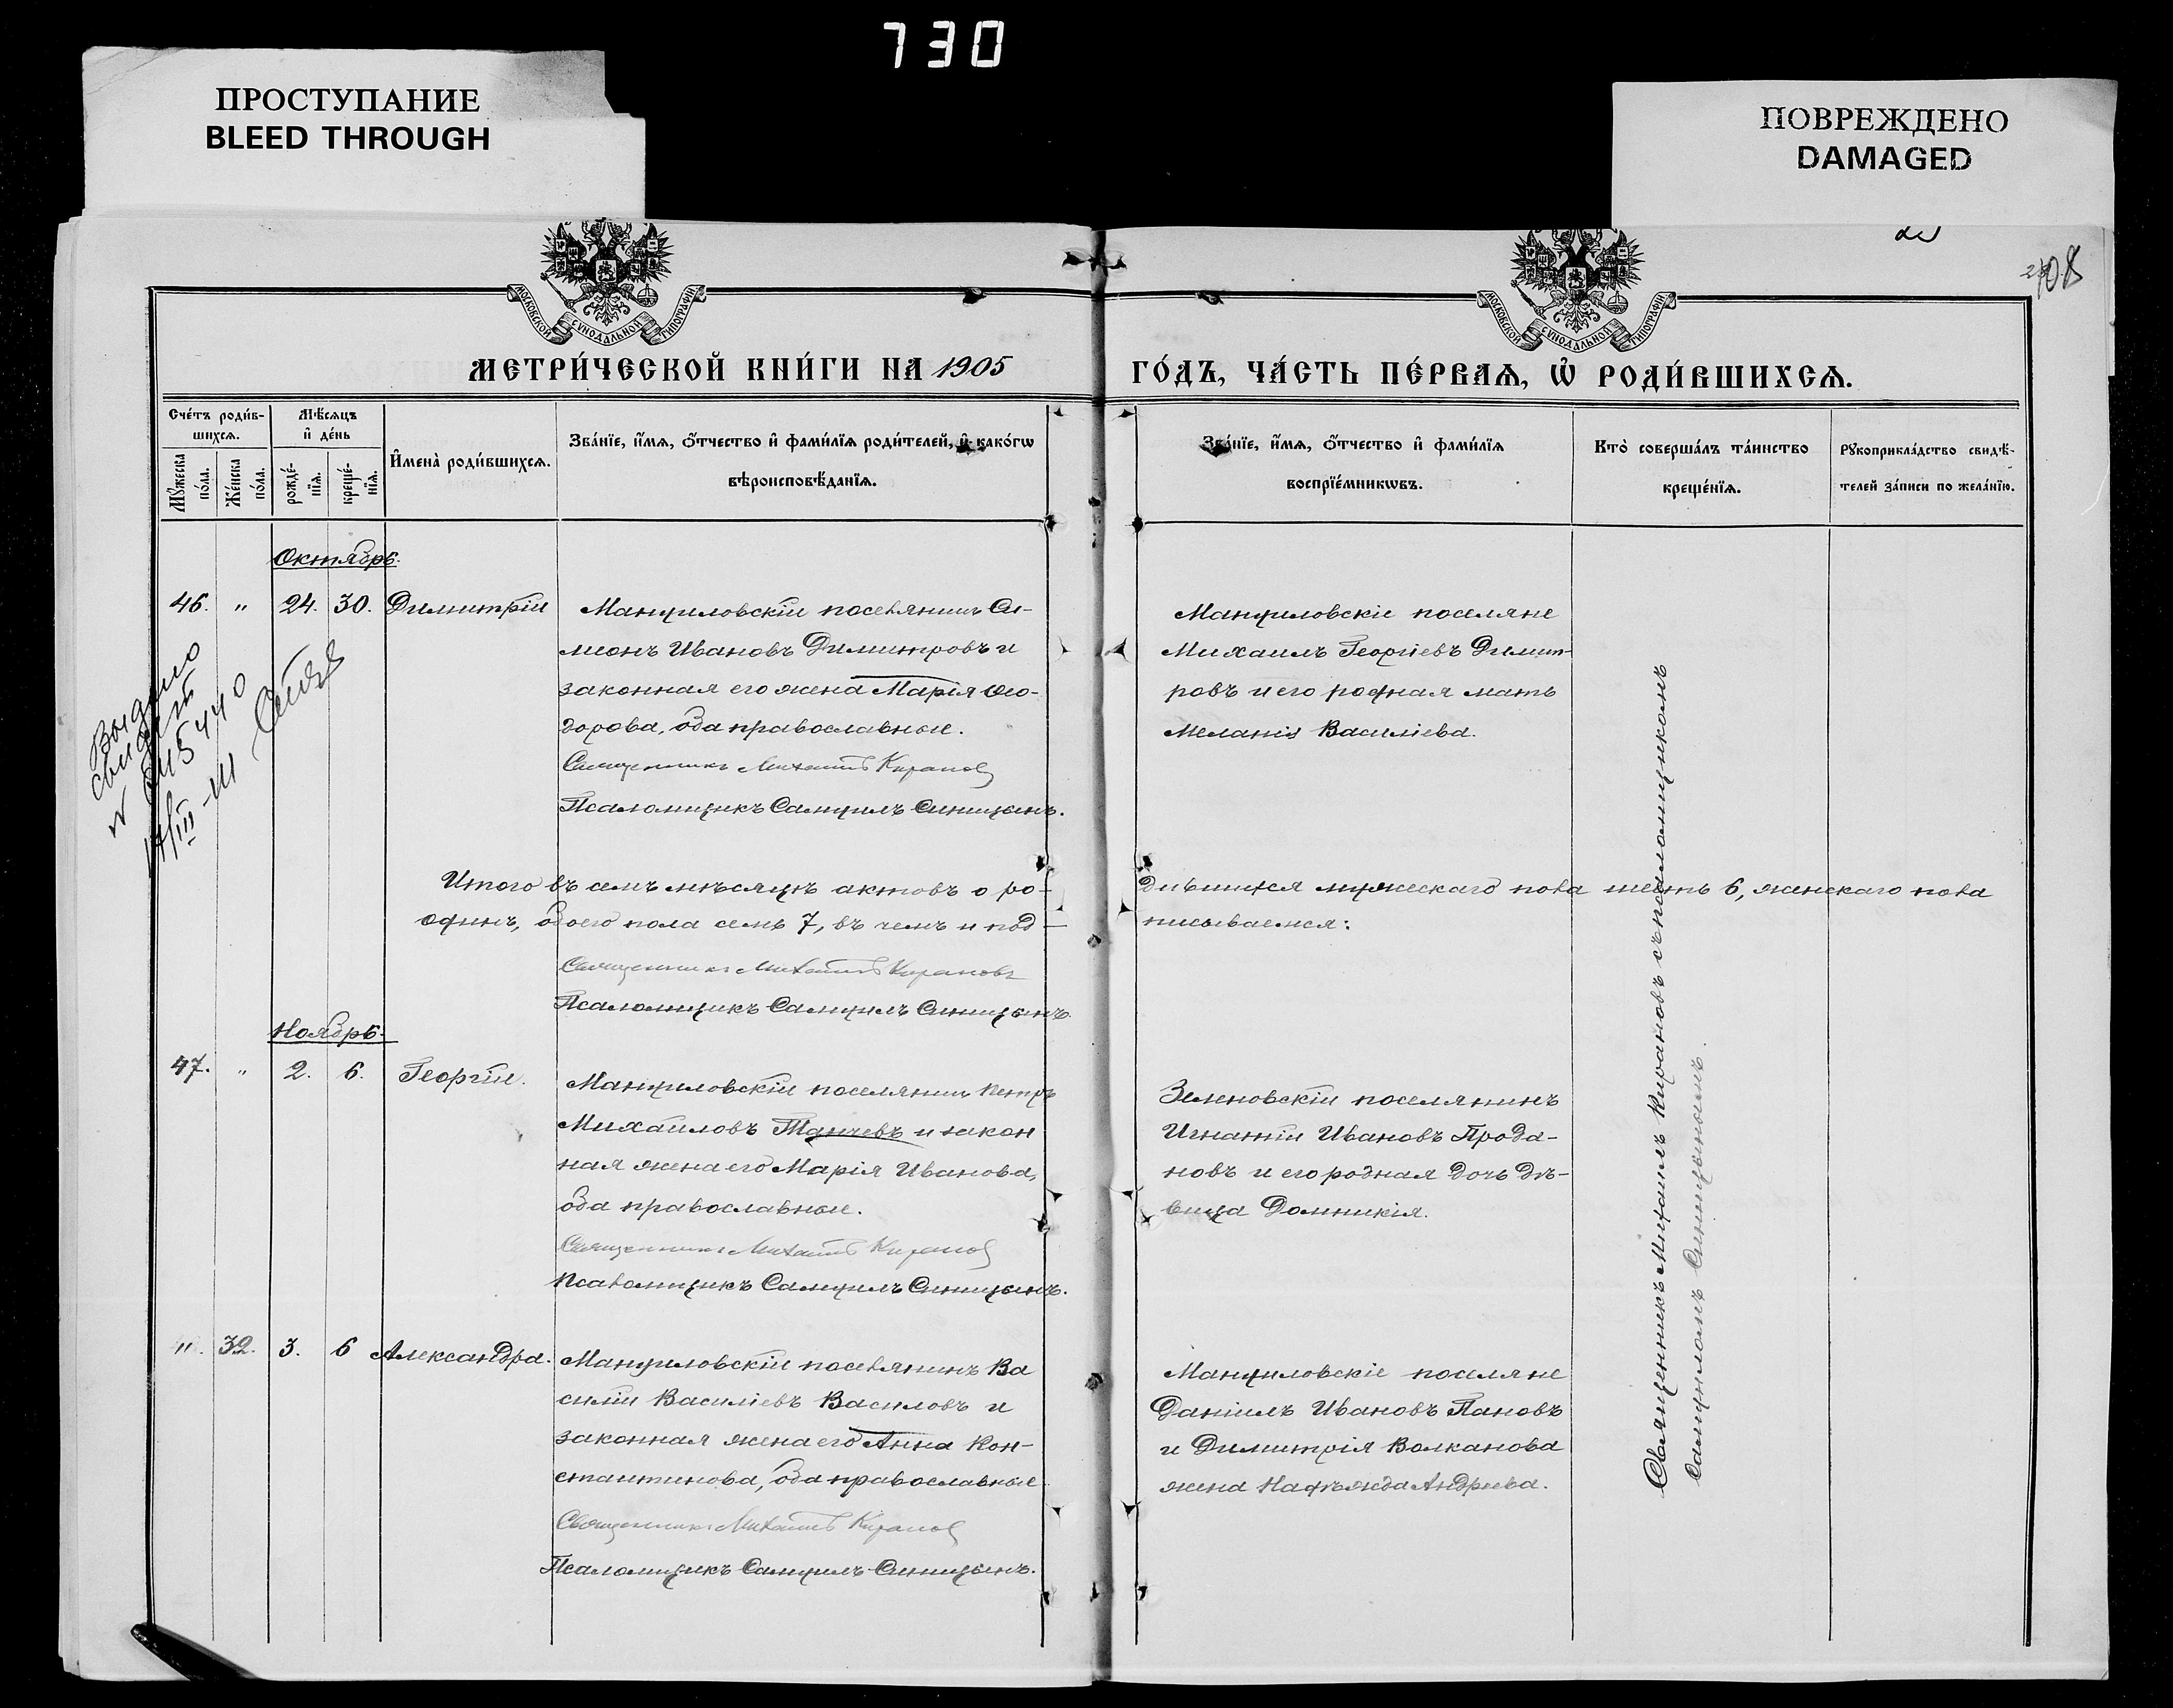 730
ПРОСТУПАНИЕ
BLEED THROUGH
ПОВРЕЖДЕНО
DAMAGED
108
МОСКОВСКОЙ СѴНОДАЛЬНОЙ ТИПОГРАФІИ
МОСКОВСКОЙ СѴНОДАЛЬНОЙ ТИПОГРАФІИ
МЕТРИ́ЧЕСКОЙ КНИ́ГИ НА 1905
ГО́ДЪ, ЧА́СТЬ ПЕ́РВАѦ, Ѡ҆ РОДИ́ВШИХСѦ.
Сче́тъ роди́в-
шихсѧ.
Мѣ́сѧцъ
и҆ де́нь
И҆мена̀ роди́вшихсѧ.
Зва́нїе, и҆́мѧ, ѻ҆́тчество и҆ фами́лїѧ роди́телей, и҆ како́гѡ
вѣроисповѣ́данїѧ.
Мꙋ́жеска по́ла.
Же́нска по́ла.
рожде́-
нїѧ.
креще́-
нїѧ.
Зва́нїе, и҆́мѧ, ѻ҆́тчество и҆ фами́лїѧ
воспрїе́мникѡвъ.
Кто̀ соверша́лъ та́инство
креще́нїѧ.
Рꙋкоприкла́дство свидѣ́-
телей за́писи по жела́нїю.
Октябрь.
46. " 24. 30. Димитрій
Мануиловскій поселянинъ Си-
меонъ Ивановъ Димитровъ и
законная его жена Марія Ѳео-
дорова, оба православные.
Священникъ Михаилъ Кирановъ
Псаломщикъ Самуилъ Синицынъ.
Мануиловскіе поселяне
Михаилъ Георгіевъ Димит-
ровъ и его родная мать
Меланія Василіева.
Выдано
свидет
№ 445440
Итого въ семъ мѣсяцѣ актовъ о ро-
дившихся мужескаго пола шесть 6, женскаго пола
одинъ, обоего пола семь 7, въ чемъ и под-
писываемся:
Священникъ Михаилъ Кирановъ
Псаломщикъ Самуилъ Синицынъ
Ноябрь.
47. " 2. 6. Георгій.
Мануиловскій поселянинъ Петръ
Михайловъ Танчевъ и закон
ная жена его Марія Иванова,
оба православные.
Священникъ Михаилъ Кирановъ
Псаломщикъ Самуилъ Синицынъ.
Зеленовскій поселянинъ
Игнатій Ивановъ Прода-
новъ и его родная дочь дѣ-
вица Домникія.
". 32. 3. 6 Александра.
Мануиловскій поселянинъ Ва
силій Василіевъ Василовъ и
законная жена его Анна Кон-
стантинова, оба православные
Священникъ Михаилъ Кирановъ
Псаломщикъ Самуилъ Синицынъ.
Мануиловскіе поселяне
Даніилъ Ивановъ Пановъ
и Димитрія Волканова
жена Надѣжда Андреева.
Священникъ Михаилъ Кирановъ съ псаломщикомъ
Самуиломъ Синицынымъ.